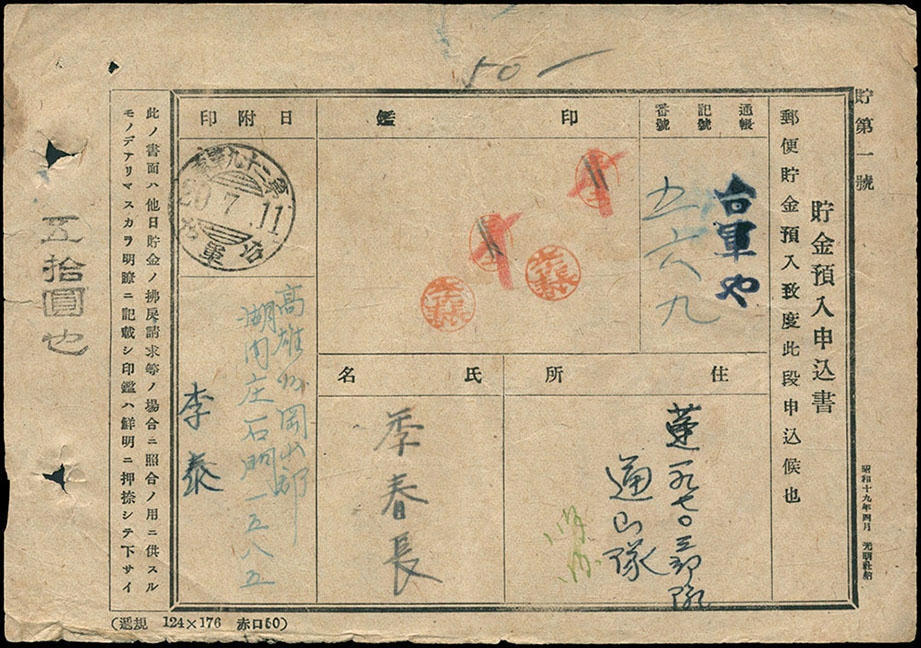 50—
貯第一號
貯金預入申込書
郵便貯金預入致度此段申込候也
昭和十九年四月 光明社納
通帳
記號
番號
台軍や
五六九
印鑑
住所
蓮一九七〇三部隊
通山隊
氏名
季春長
日附印
20.7.11
台軍
高雄州岡山郡
湖内庄石明一五八五
李泰
此ノ書面ハ他日貯金ノ拂戾請求等ノ場合ニ照合ノ用ニ供スル
モノデアリマスカラ明瞭ニ記載シ印鑑ハ鮮明ニ押捺シテ下サイ
五拾圓也
(遞規 124×176 赤口50)